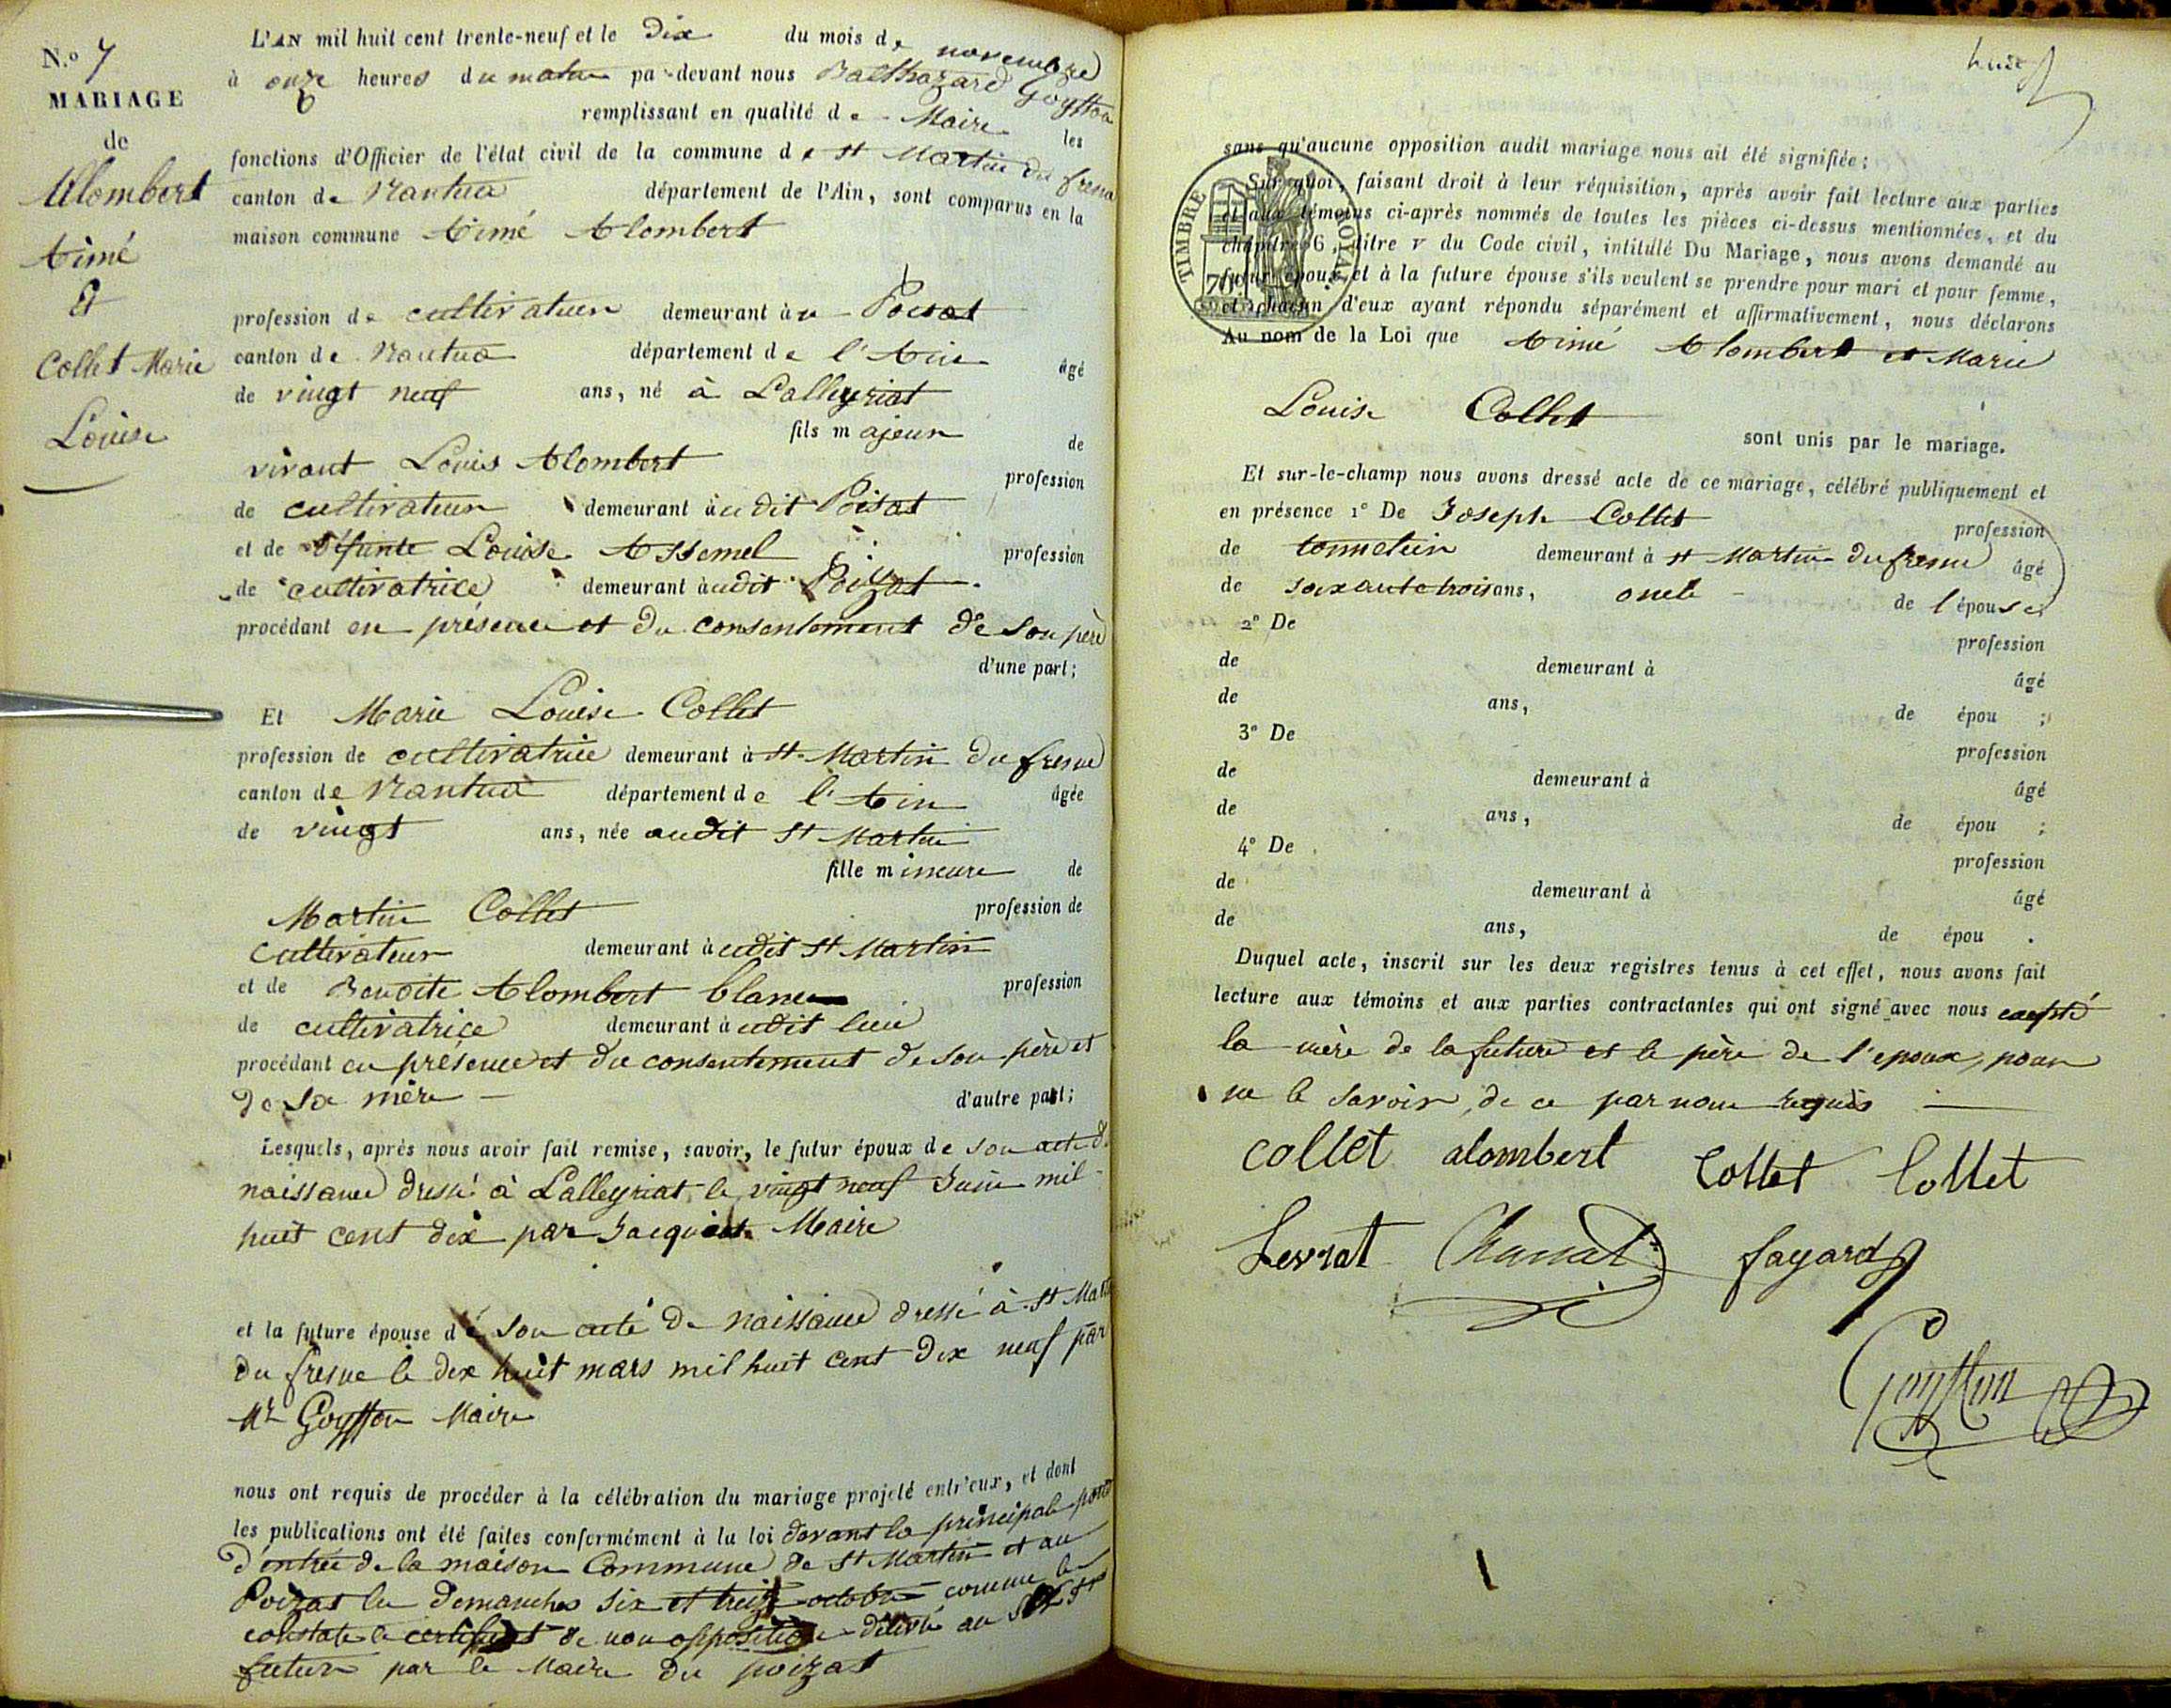 N.º 7
MARIAGE
de
Alombert
Aimé
&
Collet Marie
Louise
L'AN mil huit cent trente-neuf et le dix du mois de novembre
à onze heures du matin par-devant nous Balthazard Goyffon
remplissant en qualité de Maire les
fonctions d'Officier de l'état civil de la commune de St Martin du fresne
canton de Nantua département de l'Ain, sont comparus en la
maison commune Aimé Alombert
profession de cultivateur demeurant au Poisat
canton de Nantua département de l'Ain âgé
de vingt neuf ans, né à Lalleyriat
fils majeur de
vivant Louis Alombert profession
de cultivateur demeurant audit Poisat
et de défunte Louise Assemel profession
de cultivatrice demeurant audit Poizat
procédant en présence et du consentement de son père
d'une part;
Et Marie Louise Collet
profession de cultivatrice demeurant à St Martin du fresne
canton de Nantua département de l'Ain âgée
de vingt ans, née audit St Martin
fille mineure de
Martin Collet profession de
cultivateur demeurant audit St Martin
et de Benoite Alombert blanc profession
de cultivatrice demeurant audit lieu
procédant en présence et du consentement de son père et
de sa mère d'autre part;
Lesquels, après nous avoir fait remise, savoir, le futur époux de son acte de
naissance dressé à Lalleyriat le vingt neuf Juin mil
huit cent dix par Jacquiot Maire
et la future épouse de son acte de naissance dressé à St Martin
du fresne le dix huit mars mil huit cent dix neuf par
Mr Goyffon Maire
nous ont requis de procéder à la célébration du mariage projeté entr'eux, et dont
les publications ont été faites conformément à la loi devant la principale porte
d'entrée de la maison Commune de St Martin et au
Poizat les dimanches six et treize octobre comme le
constate le certificat de non opposition délivré au
futur par le Maire du poizat
huit
TIMBRE ROYAL
sans qu'aucune opposition audit mariage nous ait été signifiée;
Sur quoi, faisant droit à leur réquisition, après avoir fait lecture aux parties
et aux témoins ci-après nommés de toutes les pièces ci-dessus mentionnées, et du
chapitre 6, titre v du Code civil, intitulé Du Mariage, nous avons demandé au
futur époux et à la future épouse s'ils veulent se prendre pour mari et pour femme,
et chacun d'eux ayant répondu séparément et affirmativement, nous déclarons
Au nom de la Loi que Aimé Alombert et Marie
Louise Collet
sont unis par le mariage.
Et sur-le-champ nous avons dressé acte de ce mariage, célébré publiquement et
en présence 1º De Joseph Collet profession
de tourneur demeurant à St Martin du fresne âgé
de soixante trois ans, oncle de l'épouse
2º De profession
de demeurant à âgé
de ans, de épou ;
3º De profession
de demeurant à âgé
de ans, de épou ;
4º De profession
de demeurant à âgé
de ans, de épou .
Duquel acte, inscrit sur les deux registres tenus à cet effet, nous avons fait
lecture aux témoins et aux parties contractantes qui ont signé avec nous excepté
la mère de la future et le père de l'epoux, pour
ne le savoir, de ce par nous requis
collet alombert Collet Collet
Levrat fayard
Goyffon